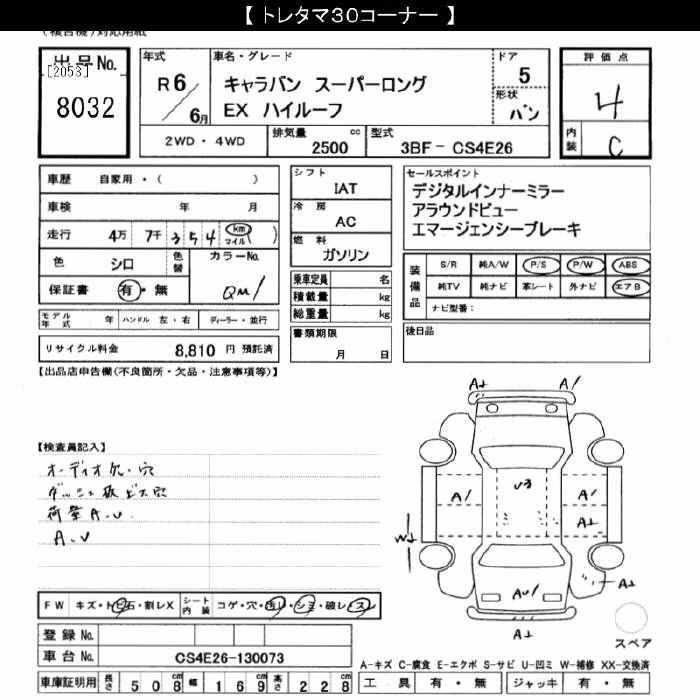 【 トレタマ30コーナー 】
(複合機)対応用紙
出品No.
[2053]
8032
年式
R6/6月
車名・グレード
キャラバン スーパーロング
EX ハイルーフ
ドア
5
形状
バン
評価点
4
内装
C
2WD・4WD
排気量 2500 cc
型式 3BF-CS4E26
車歴 自家用・( )
車検 年 月
走行 4万 7千 3 5 4 (km マイル)
色 シロ
色替
カラーNo.
QM1
保証書 有・無
モデル年式 年 ハンドル 左・右 ディーラー・並行
リサイクル料金 8,810 円 預託済
シフト
IAT
冷房
AC
燃料
ガソリン
乗車定員 名
積載量 kg
総重量 kg
書類期限
月 日
セールスポイント
デジタルインナーミラー
アラウンドビュー
エマージェンシーブレーキ
装備品
S/R 純A/W P/S P/W ABS
純TV 純ナビ 革シート 外ナビ エアB
ナビ型番:
後日品
【出品店申告欄(不良箇所・欠品・注意事項等)】
【検査員記入】
オーディオ欠・穴
ダッシュ板ビス穴
荷室A.U
A.U
A1
U3
A1
A1
W
AU1
FW キズ・トビ石・割レX
シート内装 コゲ・穴・汚レ・シミ・破レ・スレ
登録No.
車台No. CS4E26-130073
車庫証明用 長さ 508cm 幅 169cm 高さ 228cm
スペア
A-キズ C-腐食 E-エクボ S-サビ U-凹ミ W-補修 XX-交換済
工具 有・無 ジャッキ 有・無